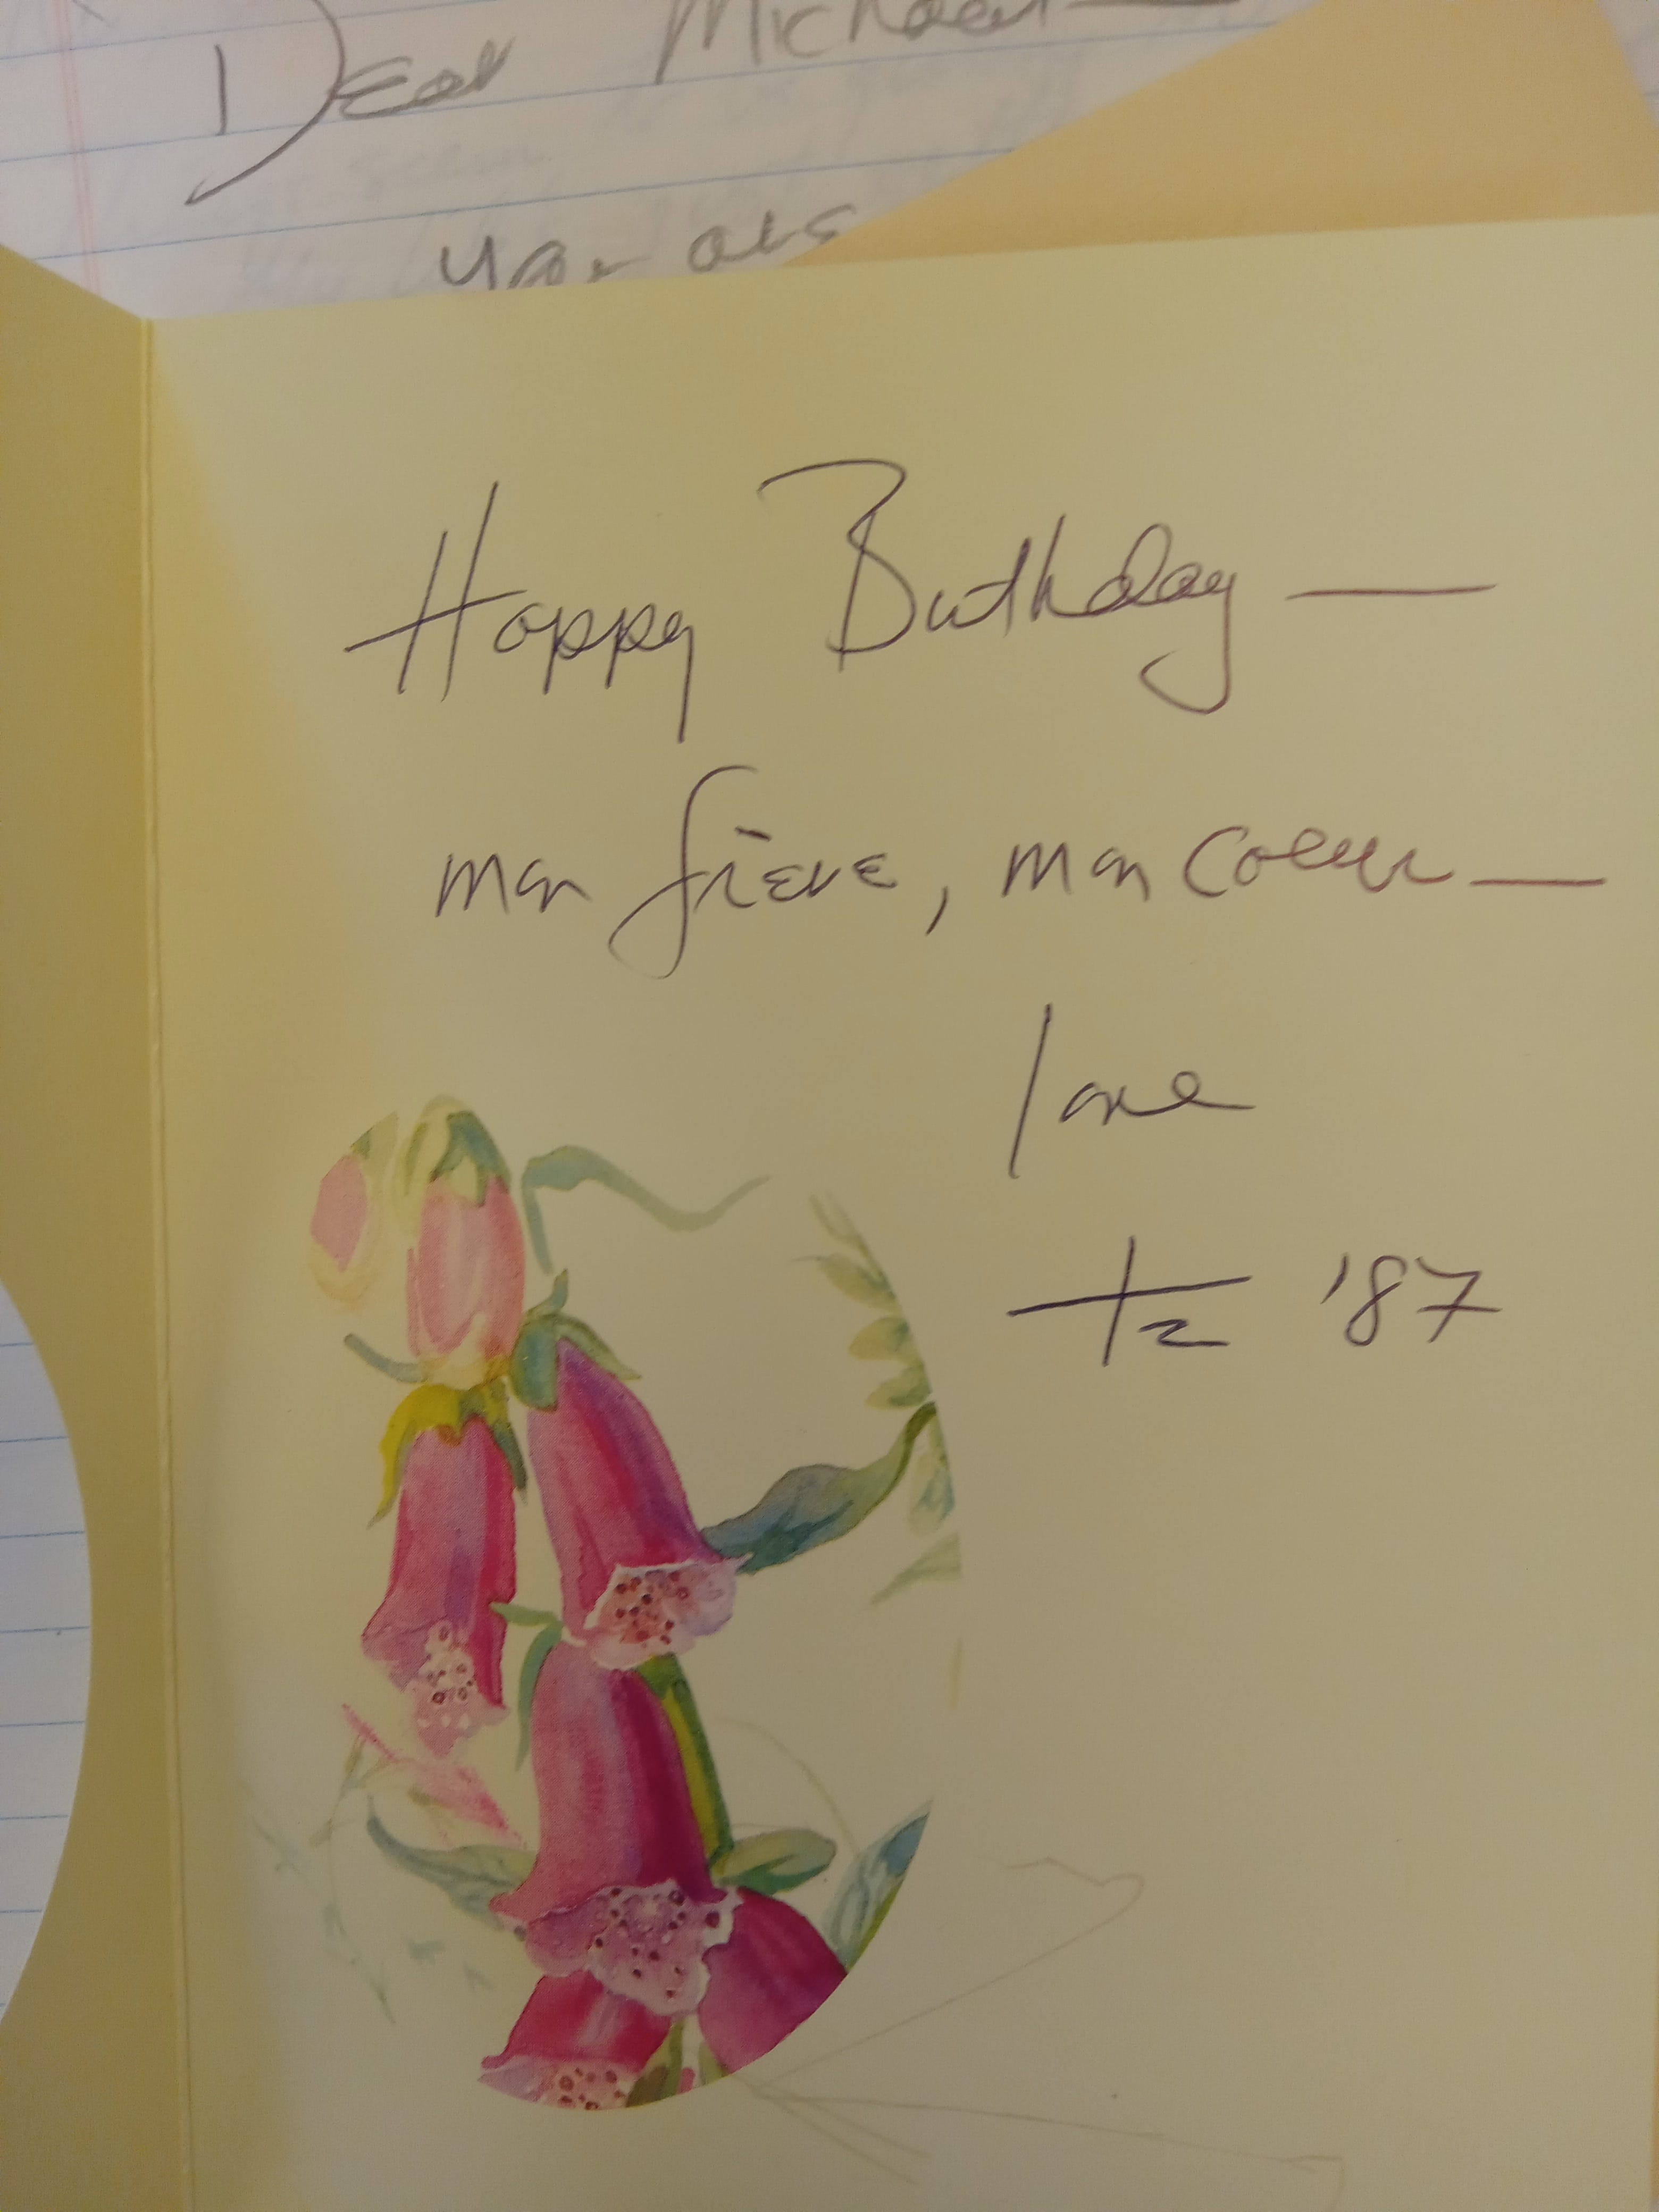 Dear Michael—
Your
Happy Birthday —
mon frère, mon coeur —
love
'87